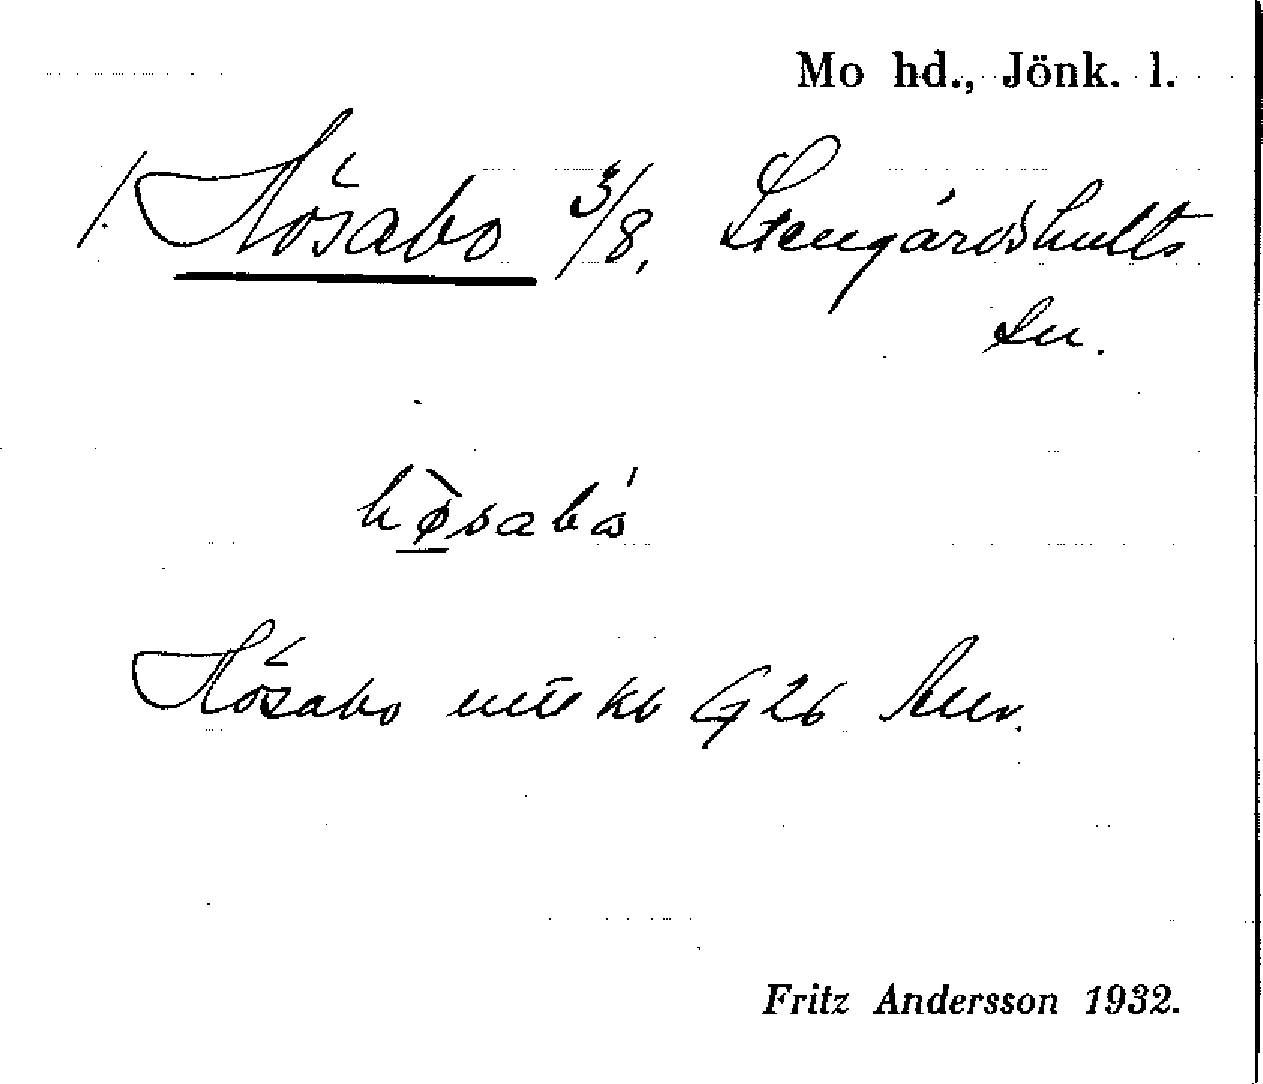 Mo hd., Jönk. l.
1. Hösabo 3/8, Stengårdshults
sn.
hø̀sabó
Hösabo
Fritz Andersson 1932.